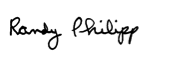 Randy Philipp